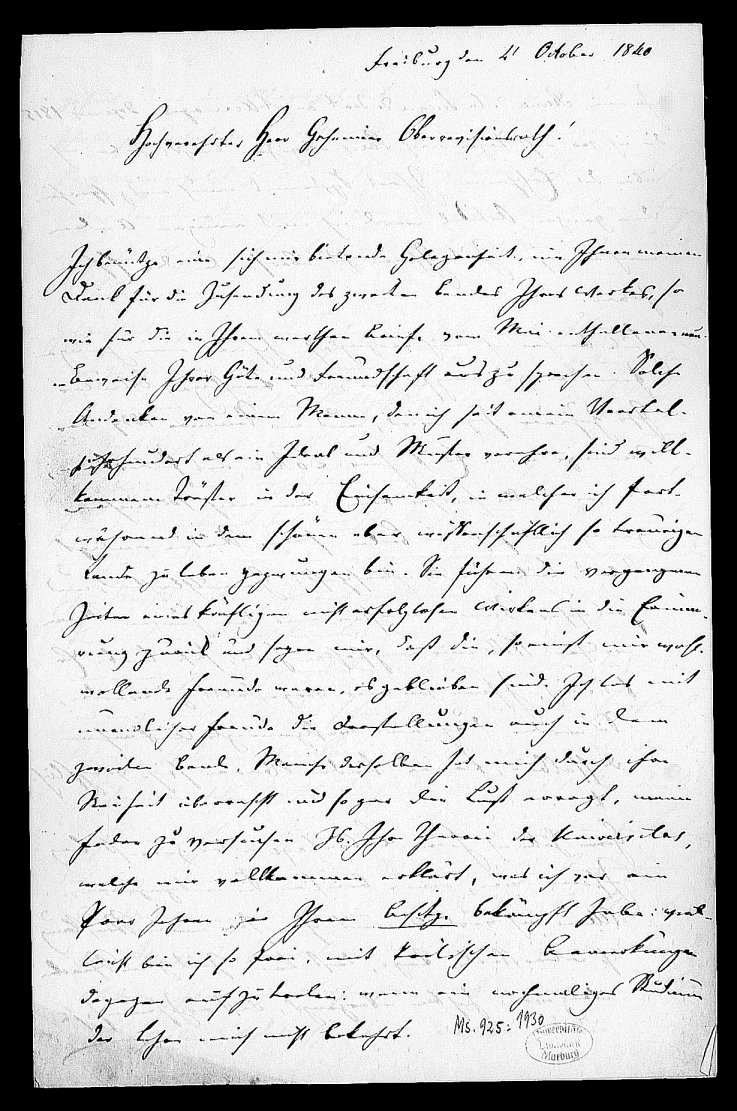 Freiburg den 4 October 1840
Hochverehrter Herr Geheimer Oberrevisionsrath!
Ich benütze eine sich mir bietende Gelegenheit, um Ihnen meinen
Dank für die Zusendung des zweiten Bandes Ihres Werkes, so
wie für die in Ihrem werthen Briefe vom Mai enthaltenen neu-
en Beweise Ihrer Güte und Freundschaft auszusprechen. Solche
Andenken von einem Manne, den ich seit einem Viertel-
jahrhundert als ein Ideal und Muster verehre, sind will-
kommene Tröster in der Einsamkeit, in welcher ich fort-
während in dem schönen aber wissenschaftlich so traurigen
Lande zu leben gezwungen bin. Sie führen die vergangenen
Zeiten eines kräftigen nicht erfolglosen Wirkens in die Erinne-
rung zurück und sagen mir, daß die, so einst mir wohl-
wollende Freunde waren, es geblieben sind. Ich las mit
unendlicher Freude die Darstellungen auch in dem
zweiten Bande. Manche derselben hat mich durch ihre
Neuheit überrascht und sogar die Lust erregt, meine
Feder zu versuchen zb. Ihre Theorie der
welche mir vollkommen erklärt, was ich vor ein
Paar Jahren in Ihrem Besitze bekämpft habe: viel-
leicht bin ich so frei, mit kritischen Bemerkungen
dagegen aufzutreten: wenn ein nochmaliges Studium
der Lehre mich nicht bekehrt.
Ms. 925: 1930
Universitäts
Bibliothek
Marburg